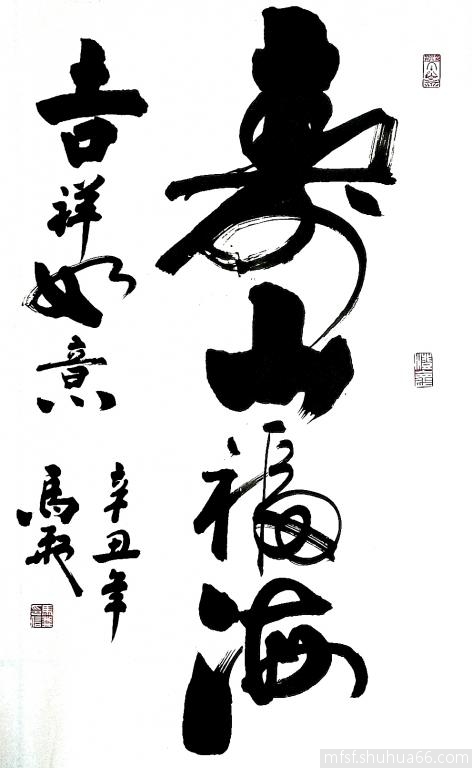 寿山福海
吉祥如意
辛丑年
馬
mfsf.shuhua66.com